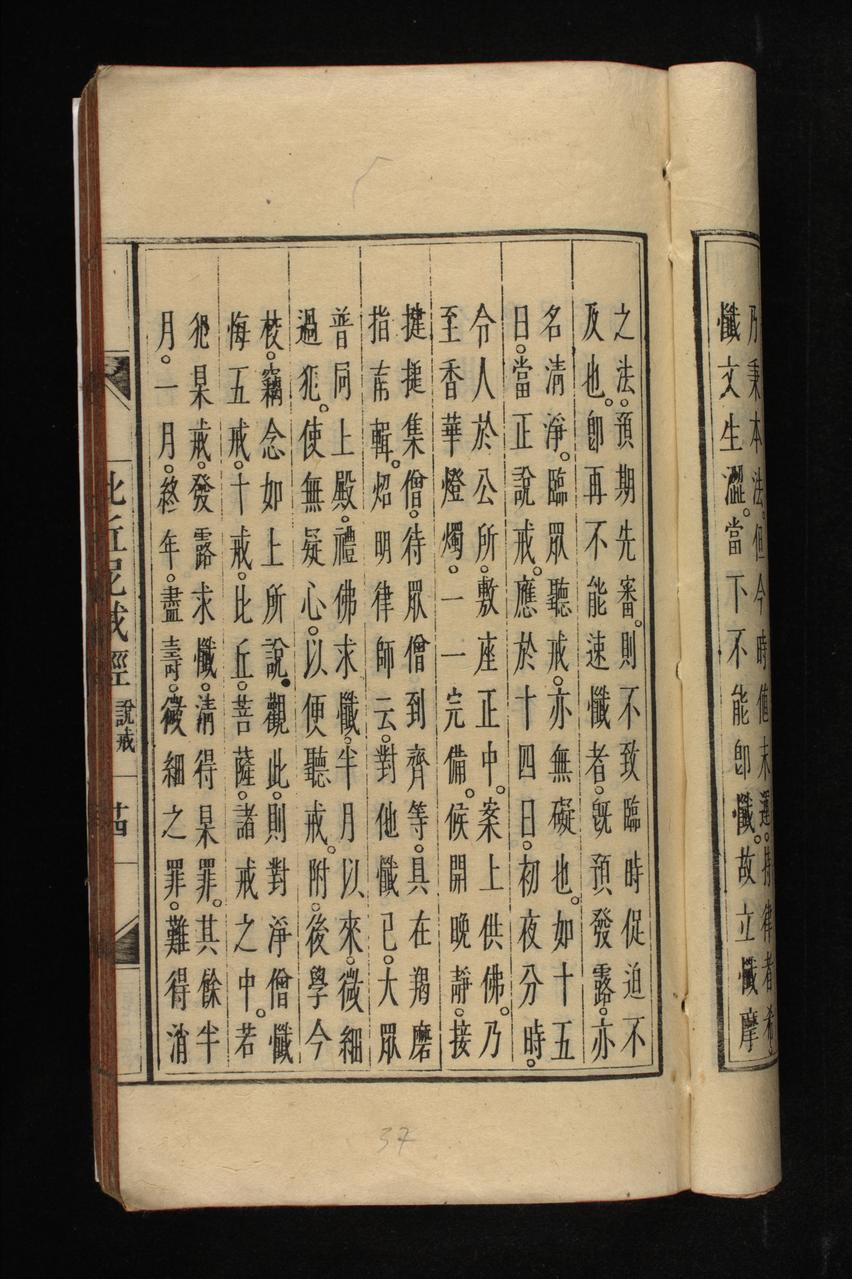 乃秉本法。但今時值末運。持律者希。
懺文生澀。當下不能即懺。故立懺摩
之法。預期先審。則不致臨時促迫不
及也。即再不能速懺者。既預發露。亦
名清淨。臨眾聽戒。亦無礙也。如十五
日。當正說戒。應於十四日。初夜分時。
令人於公所。敷座正中。案上供佛。乃
至香華燈燭。一一完備。候開晚靜。接
揵搥集僧。待眾僧到齊等。具在羯磨
指南輯。炤明律師云。對他懺已。大眾
普同上殿。禮佛求懺。半月以來。微細
過犯。使無疑心。以便聽戒。附。後學今
校。竊念如上所說。觀此。則對淨僧懺
悔五戒。十戒。比丘。菩薩。諸戒之中。若
犯某戒。發露求懺。清得某罪。其餘半
月。一月。終年。盡壽。微細之罪。難得消
比丘尼戒經 說戒 廿四
37